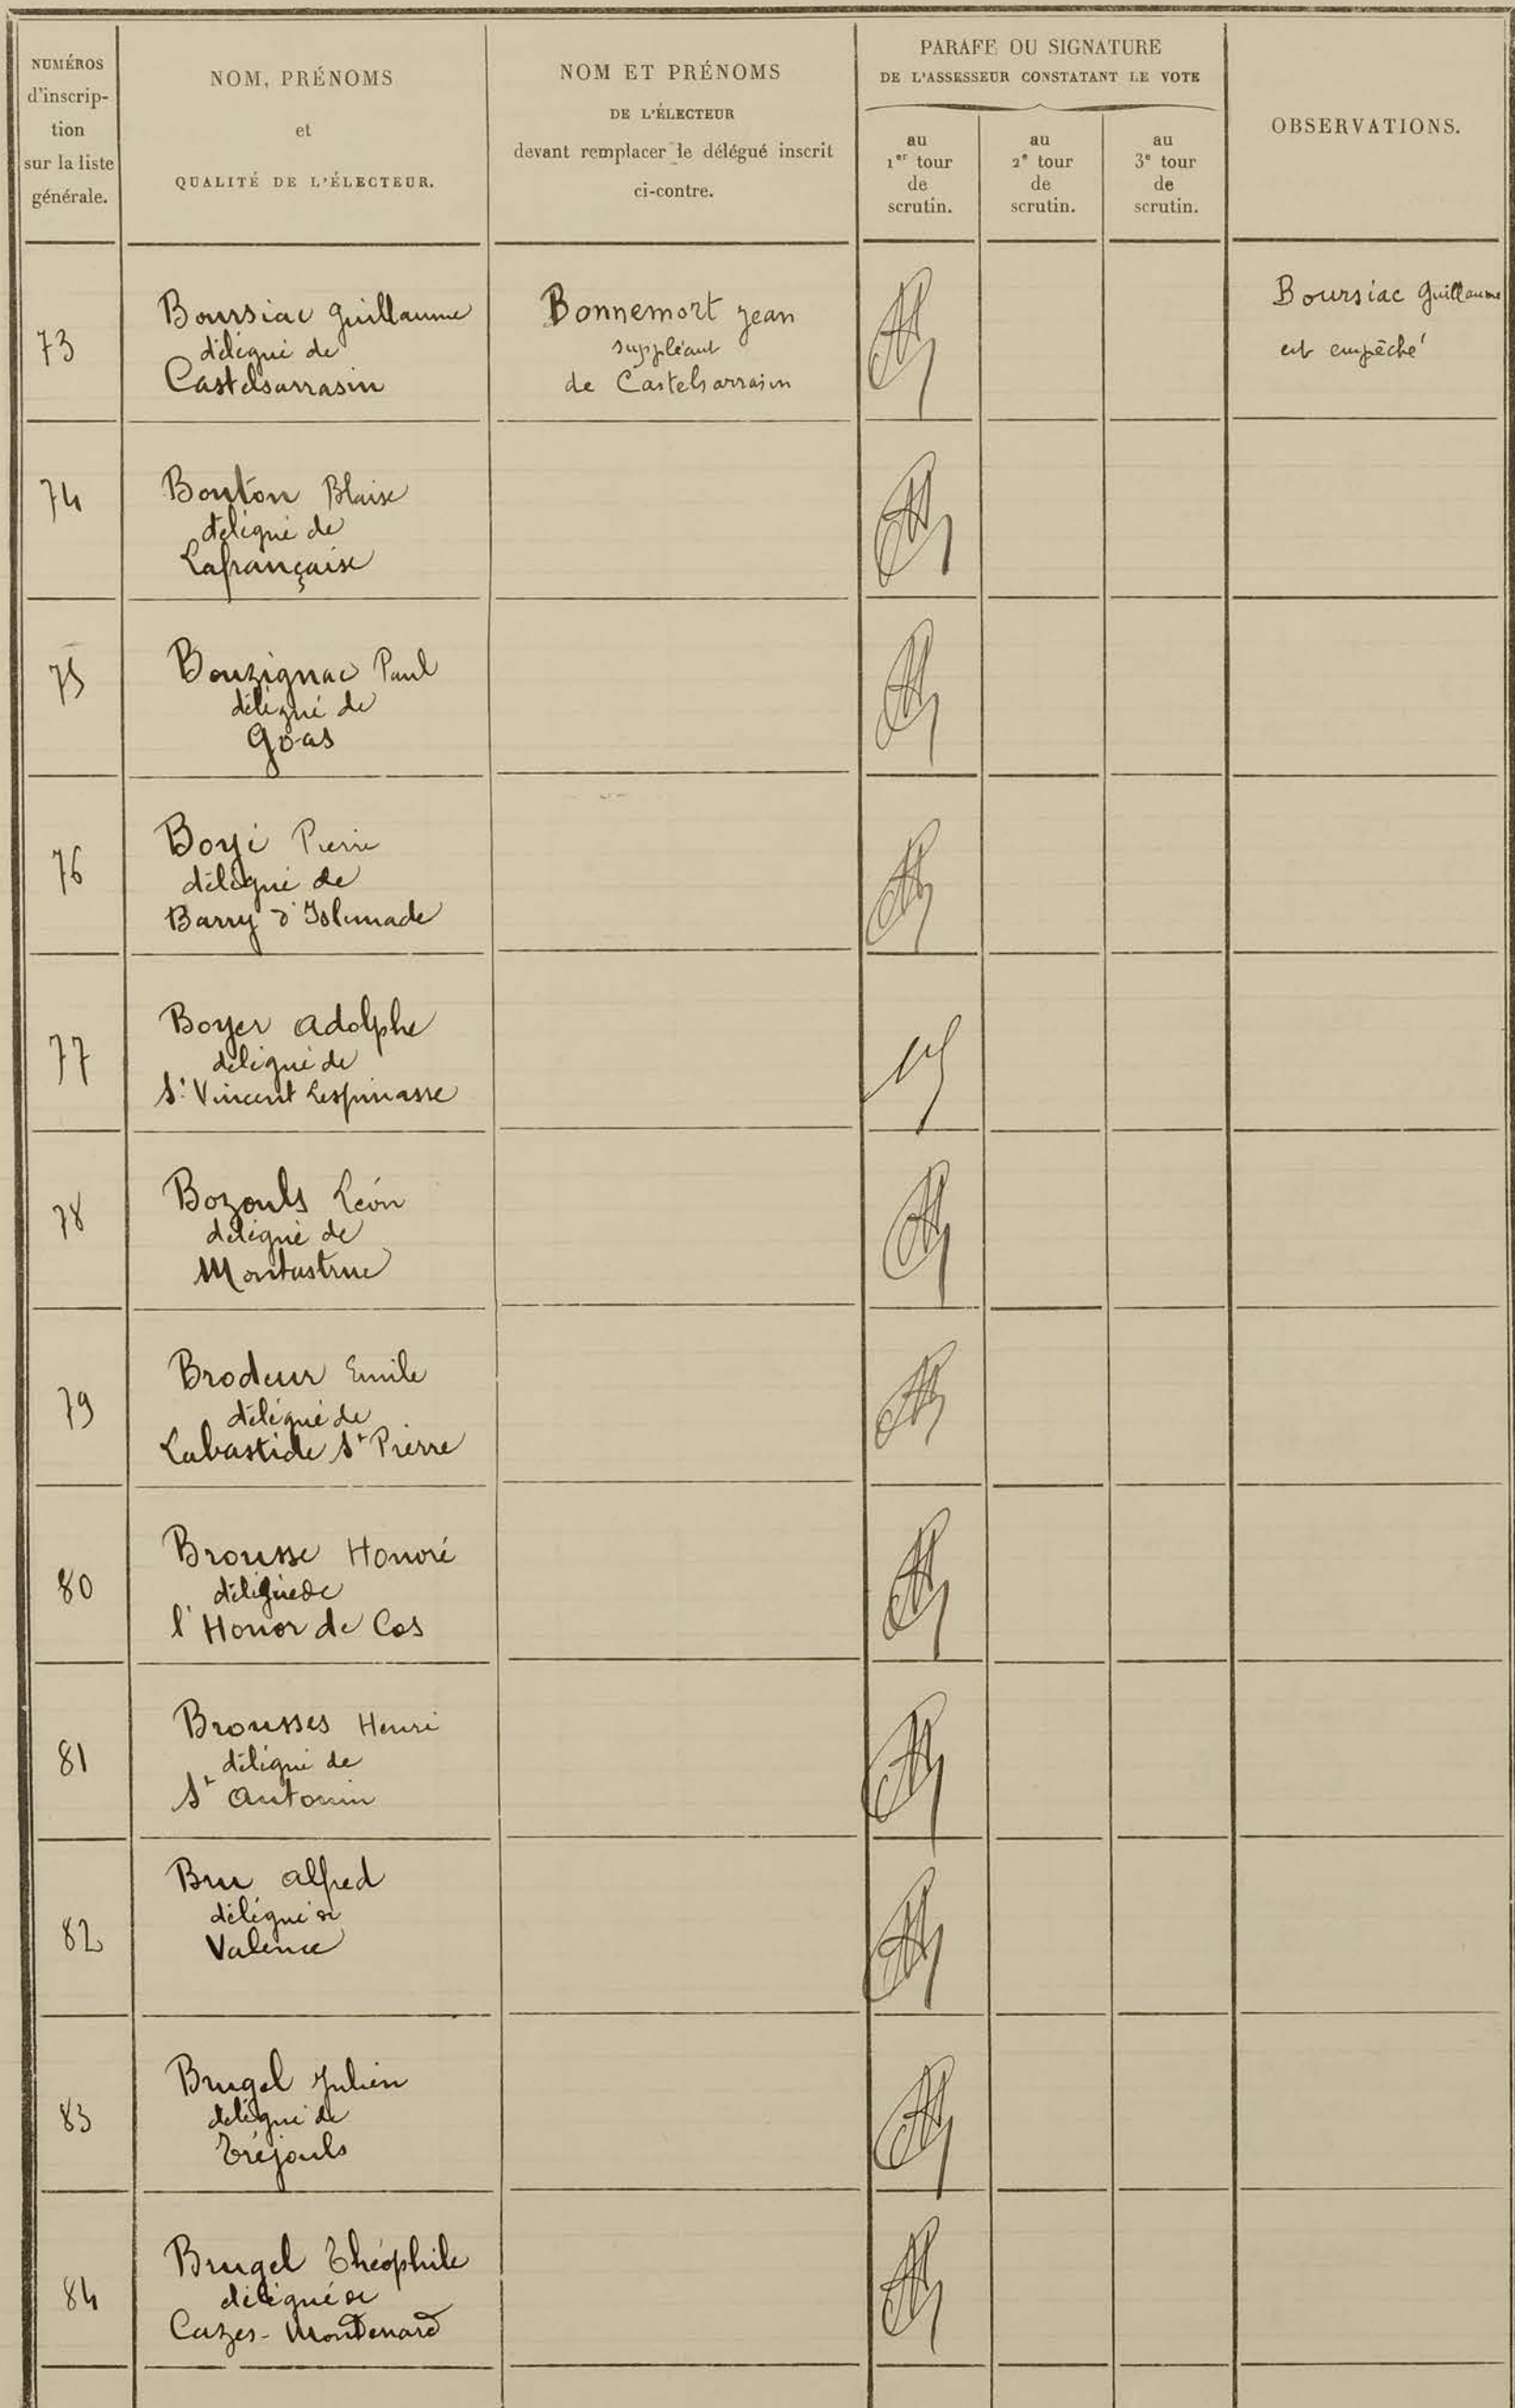 NUMÉROS
d'inscrip-
tion
sur la liste
générale.
NOM, PRÉNOMS
et
QUALITÉ DE L'ÉLECTEUR.
NOM ET PRÉNOMS
DE L'ÉLECTEUR
devant remplacer le délégué inscrit
ci-contre.
PARAFE OU SIGNATURE
DE L'ASSESSEUR CONSTATANT LE VOTE
au
1er tour
de
scrutin.
au
2e tour
de
scrutin.
au
3e tour
de
scrutin.
OBSERVATIONS.
73
Boursiac Guillaume
délégué de
Castelsarrasin
Bonnemort Jean
suppléant
de Castelsarrasin
Boursiac Guillaume
est empêché
74
Bouton Blaise
délégué de
Lafrançaise
75
Bouzignac Paul
délégué de
Goas
76
Boyé Pierre
délégué de
Barry d'Islemade
77
Boyer Adolphe
délégué de
St Vincent Lespinasse
78
Bozouls Léon
délégué de
Montastruc
79
Brodeur Emile
délégué de
Labastide St Pierre
80
Brousse Honoré
délégué de
l'Honor de Cos
81
Brousses Henri
délégué de
St Antonin
82
Bru Alfred
délégué de
Valence
83
Brugel Julien
délégué de
Tréjouls
84
Brugel Théophile
délégué de
Cazes-Mondenard